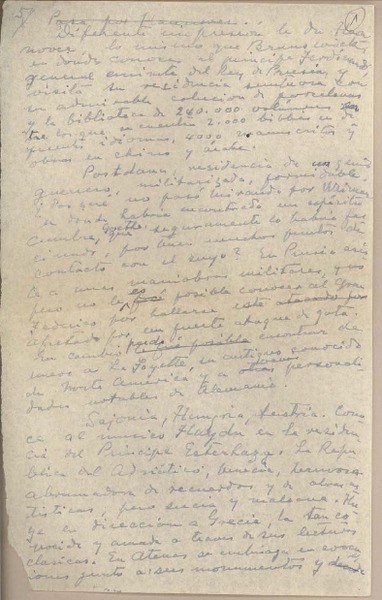 5/
Pasa por
Diferente impresión le da Han
nover, lo mismo que Brunswick
en donde conoce al príncipe Ferdinand
general emérito del Rey de Prusia, y
visita su residencia
su admirable colección de porcelanas
y la biblioteca de 240.000 volúmenes en
tre los que se cuentan 2.000 biblias en di
ferentes idiomas, 4000 manuscritos y
obras en chino y árabe.
Postdam, residencia de un genio
guerrero, militarizada, formidable.
¿Por qué no pasó Miranda por Weimar
en donde habría encontrado un espíritu
cumbre, Goethe, que seguramente lo habría fas
cinado, por tener muchos puntos de
contacto con el suyo? En Prusia asis
te a unas maniobras militares, y no
pero no le es posible conocer al Gran
Federico por hallarse este atacado por
afectado por un fuerte ataque de gota.
En cambio pudo encontrar de
nuevo a La Fayette, su antiguo conocido
de Norte América y a otras personali
dades notables de Alemania.
Sajonia, Hungría, Austria. Cono
ce al músico Haydn en la residen
cia del Príncipe Esterhazy. La Repú
blica del Adriático, Venecia, hermosa
abrumadora de recuerdos y de obras ar
tísticas, pero sucia y malsana. Hu
ye en dirección a Grecia, la tan co
nocida y amada a través de sus lecturas
clásicas. En Atenas se embriaga en evoca
ciones junto a sus monumentos y desde